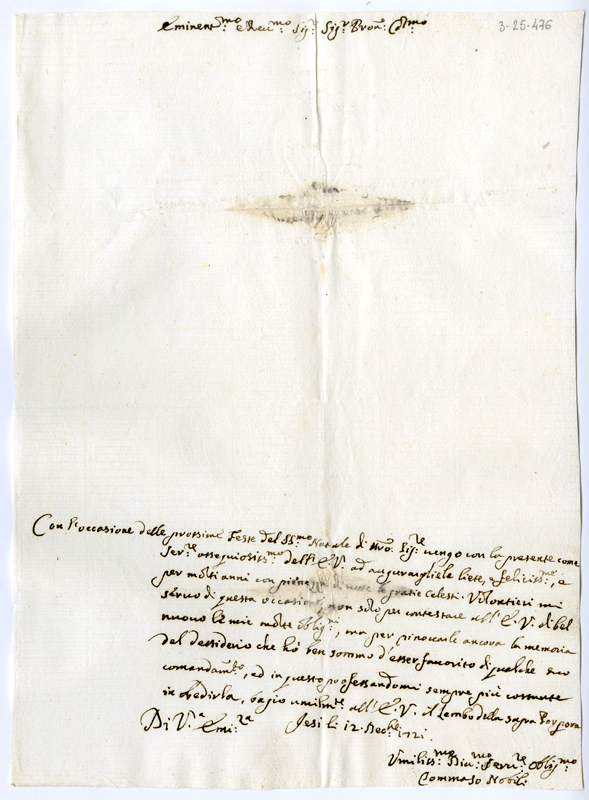 Eminent.mo e Reu.mo Sig.r Sig.r Pron. Col.mo
3-25-476
Con l'occasione delle prossime Feste del SS.mo Natale di Nro. Sig.re uengo con la presente come
Ser.re ossequiosiss.mo dell'E.V. ad augurargliele liete, e felicissi.me, e
per molti anni con pienezza di tutte le gratie Celesti. Volontieri mi
seruo di questa occasione, non solo per contestare all'E.V. di bel
nuouo le mie molte oblig.ni, ma per rinouarle ancora la memoria
del dessiderio che hò ben sommo d'esser fauorito di qualche suo
comandam.to, ed in questo professandomi sempre più costante
in obedirla, bagio umilm.te all'E.V. il lembo della sagra Porpora
Di V.a Emi.za Jesi li 12. Decb.re 1721.
Vmiliss.mo Diu.mo Serr.re Oblig.mo
Tommaso Nobili